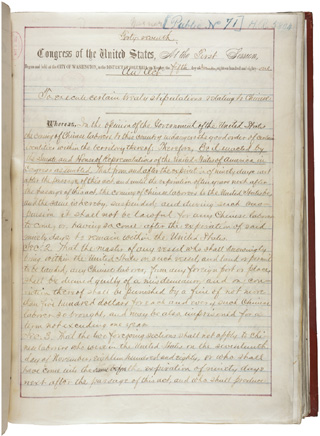 Public No 71
Forty-seventh
Congress of the United States, At the First Session,
Begun and held at the CITY OF WASHINGTON, in the DISTRICT OF COLUMBIA, on Monday the fifth day of December, eighteen hundred and eighty-
An Act
To execute certain treaty stipulations relating to Chinese.
Whereas, In the opinion of the Government of the United States
the coming of Chinese laborers to this country endangers the good order of certain
localities within the territory thereof: Therefore, Be it enacted by
the Senate and House of Representatives of the United States of America in
Congress assembled, That from and after the expiration of ninety days next
after the passage of this act, and until the expiration of ten years next after
the passage of this act, the coming of Chinese laborers to the United States be,
and the same is hereby, suspended; and during such sus-
pension it shall not be lawful for any Chinese laborer
to come, or, having so come after the expiration of said
ninety days, to remain within the United States.
Sec. 2. That the master of any vessel who shall knowingly
bring within the United States on such vessel, and land or permit
to be landed, any Chinese laborer, from any foreign port or place,
shall be deemed guilty of a misdemeanor, and on con-
viction thereof shall be punished by a fine of not more
than five hundred dollars for each and every such Chinese
laborer so brought, and may be also imprisoned for a
term not exceeding one year.
Sec. 3. That the two foregoing sections shall not apply to Chi-
nese laborers who were in the United States on the seventeenth
day of November, eighteen hundred and eighty, or who shall
have come into the same before the expiration of ninety days
next after the passage of this act, and who shall produce